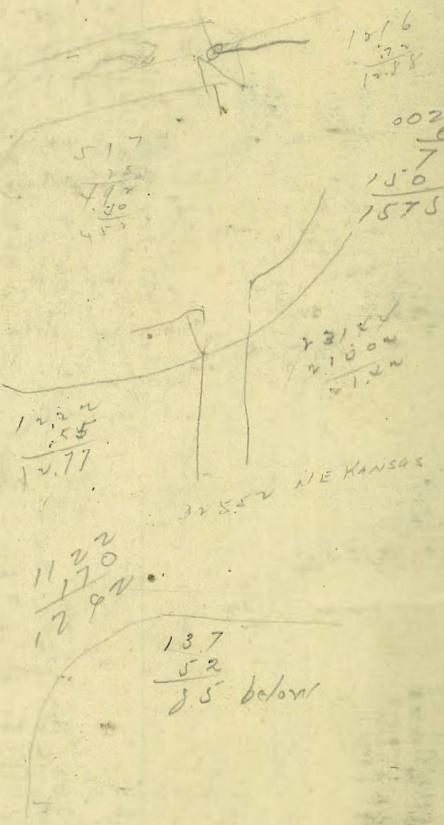 1216
.72
1288
002
6
7
150
1575
517
25
492
.40
452
23142
21002
21.42
1222
.55
12.77
3255.2 N.E KANSAS
1122
170
1292
137
52
85 below